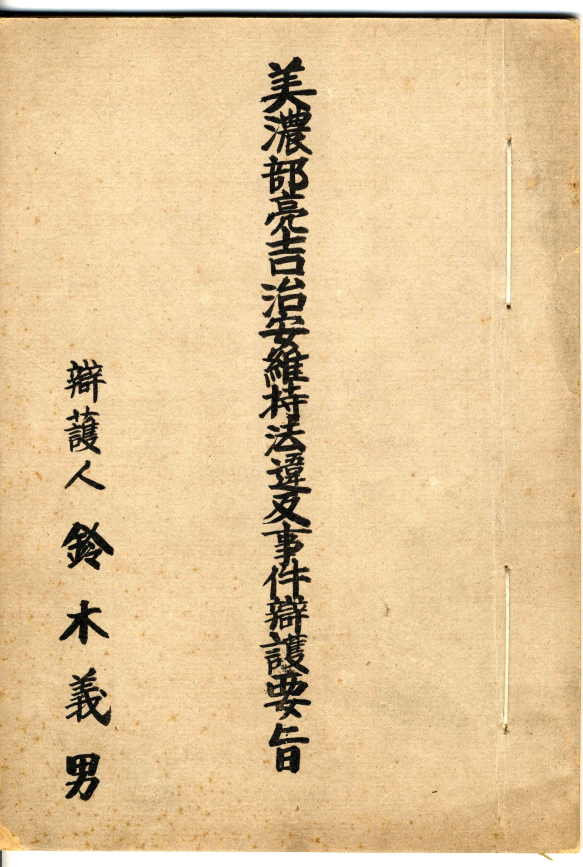 美濃部亮吉治安維持法違反事件辯護要旨
辯護人 鈴木義男